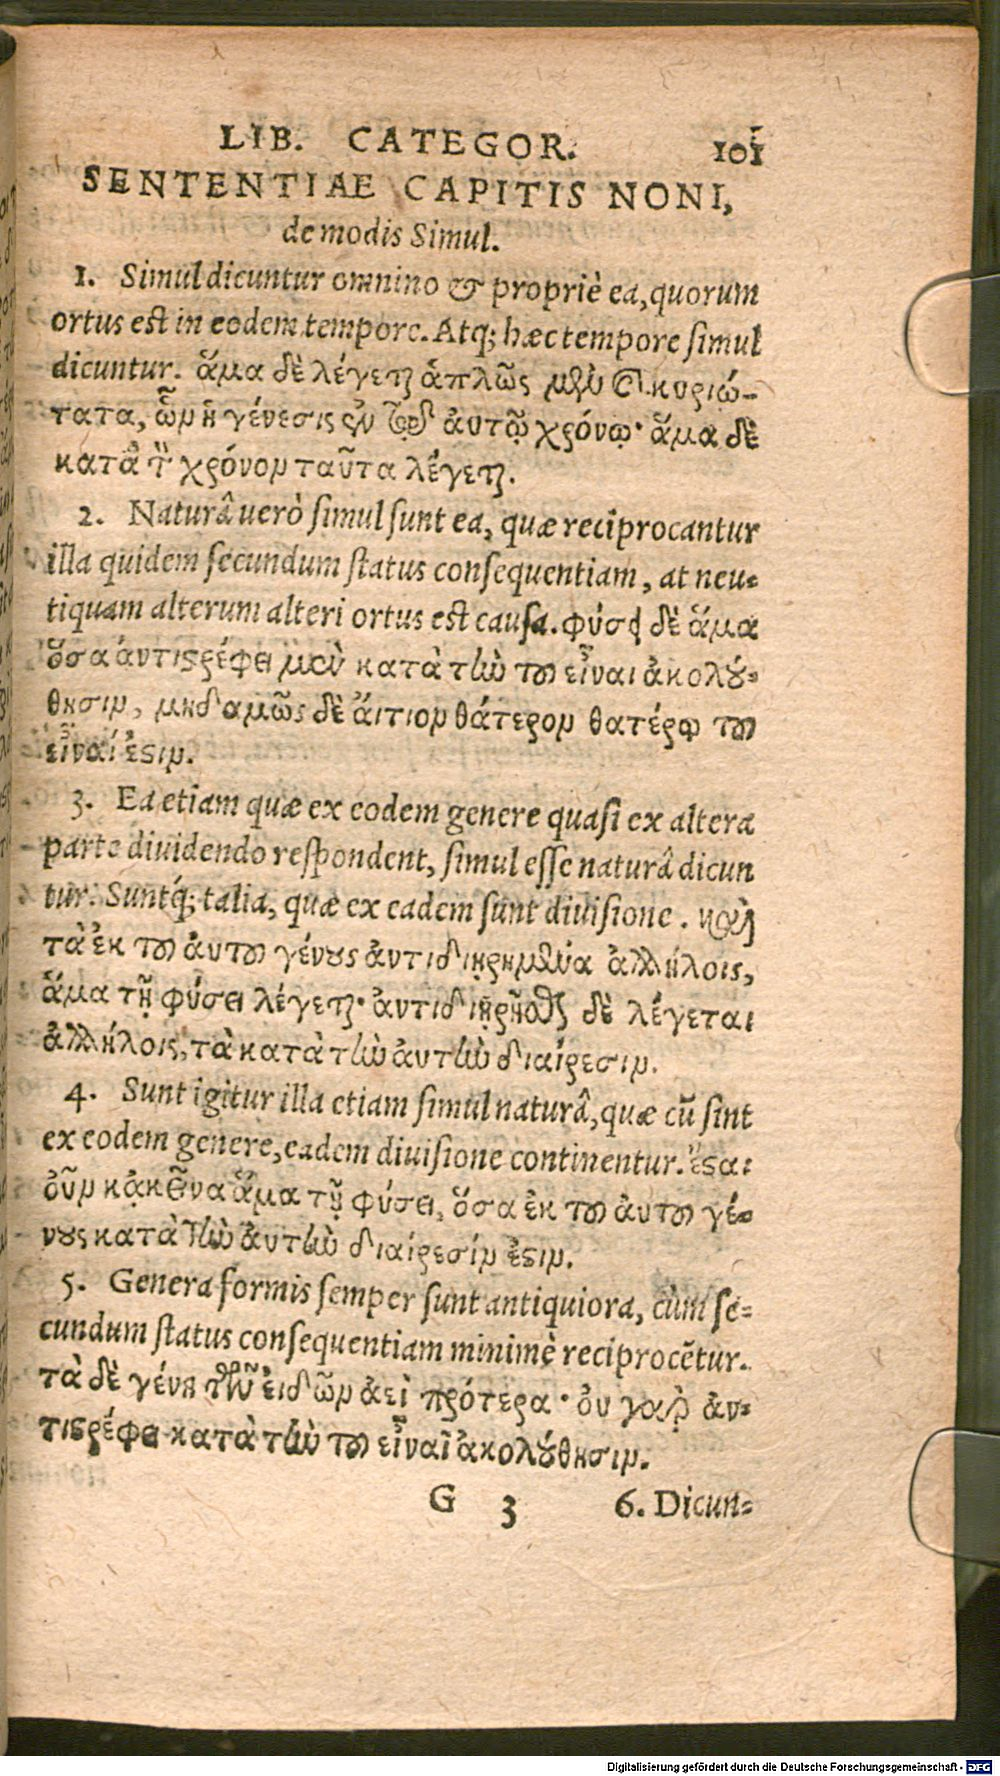 LIB. CATEGOR. 101
SENTENTIAE CAPITIS NONI,
de modis Simul.
1. Simul dicuntur omnino & propriè ea, quorum
ortus est in eodem tempore. Atq; hæc tempore simul
dicuntur. ἅμα δὲ λέγεται ἁπλῶς μὲν καὶ κυριώ-
τατα, ὧν ἡ γένεσις ἐν τῷ ἀυτῷ χρόνῳ· ἅμα δὲ
κατὰ τὸν χρόνον ταῦτα λέγεται.
2. Naturâ uerò simul sunt ea, quæ reciprocantur
illa quidem secundum status consequentiam, at neu-
tiquam alterum alteri ortus est causa. φύσει δὲ ἅμα
ὅσα ἀντιστρέφει μὲν κατὰ τὴν τοῦ εἶναι ἀκολού-
θησιν, μηδαμῶς δὲ ἄιτιον θάτερον θατέρῳ τοῦ
εἶναί ἐστιν.
3. Ea etiam quæ ex eodem genere quasi ex altera
parte diuidendo respondent, simul esse naturâ dicun
tur. Suntq́; talia, quæ ex eadem sunt diuisione. καὶ
τὰ ἐκ τοῦ ἀυτοῦ γένους ἀντιδιῃρημένα ἀλλήλοις,
ἅμα τῇ φύσει λέγεται· ἀντιδιῃρῆσθαι δὲ λέγεται
ἀλλήλοις, τὰ κατὰ τὴν ἀυτὴν διαίρεσιν.
4. Sunt igitur illa etiam simul naturâ, quæ cũ sint
ex eodem genere, eadem diuisione continentur. ἔσται
οὖν κἀκεῖνα ἅμα τῇ φύσει, ὅσα ἐκ τοῦ ἀυτοῦ γέ-
νους κατὰ τὴν ἀυτὴν διαίρεσίν ἐστιν.
5. Genera formis semper sunt antiquiora, cùm se-
cundum status consequentiam minimè reciprocẽtur.
τὰ δὲ γένη τῶν ἐιδῶν ἀεὶ πρότερα· ὀυ γὰρ ἀν-
τιστρέφει κατὰ τὴν τοῦ εἶναι ἀκολούθησιν.
G 3 6. Dicun-
Digitalisierung gefördert durch die Deutsche Forschungsgemeinschaft - DFG